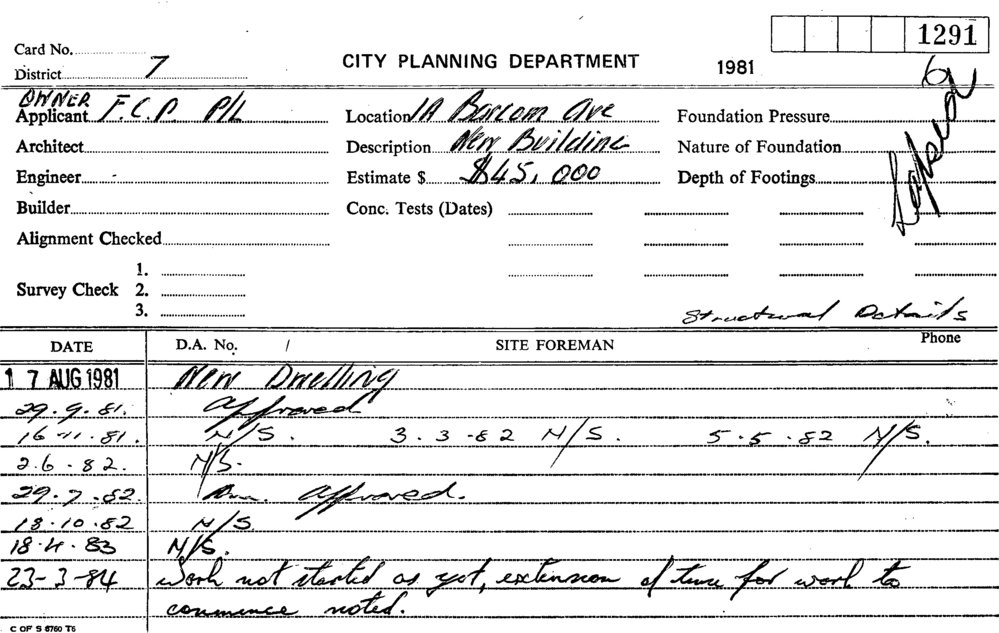 1291
Card No.
District 7
CITY PLANNING DEPARTMENT
1981
6
OWNER
Applicant F.C.P P/L
Location 1A Barcom Ave
Foundation Pressure
Architect
Description New Building
Nature of Foundation
Engineer
Estimate $ $45,000
Depth of Footings
Builder
Conc. Tests (Dates)
Alignment Checked
1.
Survey Check 2.
3.
Structural Details
DATE D.A. No. / SITE FOREMAN Phone
17 AUG 1981 New Dwelling
29.9.81. Approved
16-11.81. N/S. 3.3-82 N/S. 5.5.82 N/S.
2.6.82. N/S.
29.7.82. Approved.
18.10.82 N/S
18.4.83 N/S.
23-3-84 Work not started as yet, extension of time for work to
commence noted.
C OF S 8760 T6